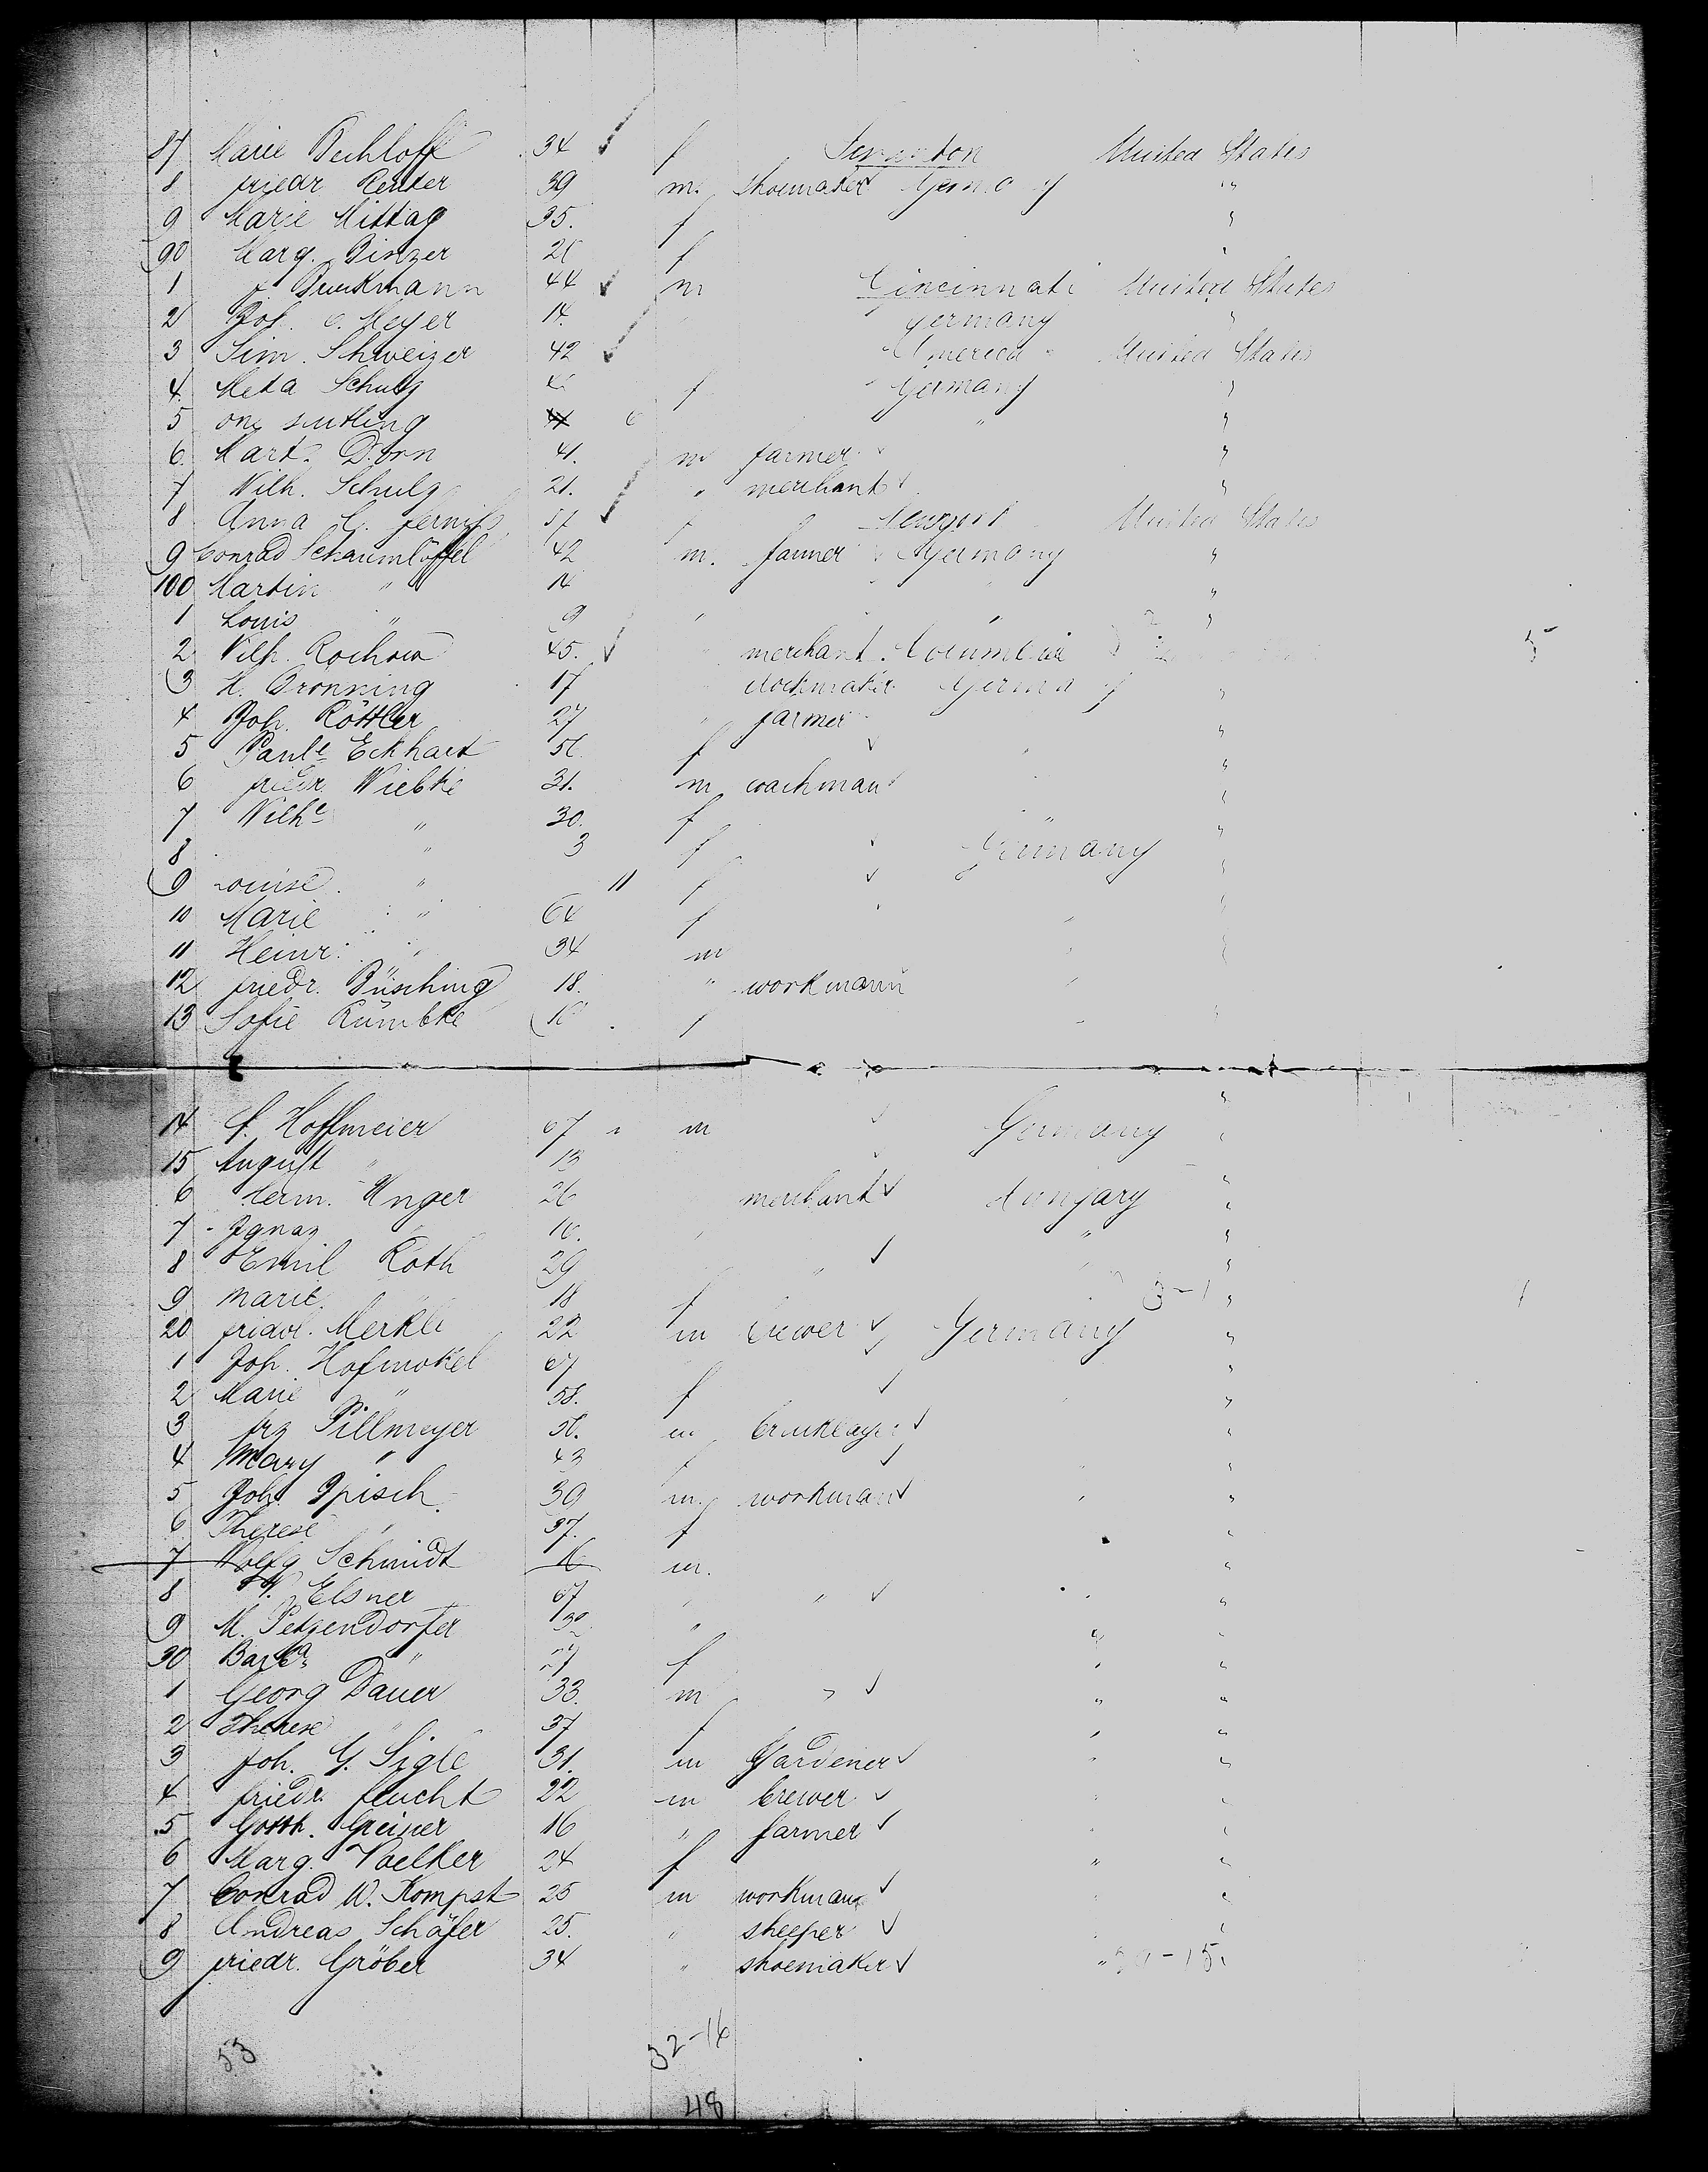 87 Marie Bechloff 34 ✓ f Scranton United States
8 friedr Reuter 39 m. shoemaker Germany "
9 Marie Mittag 35. f "
90 Marg. Binzer f "
1 Bruckmann 44 ✓ m Cincinnati United States
2 Joh. Meyer 14. germany "
3 Sim. Schweizer 42 ✓ America United States
4. Meta Schulz f Germany "
5 one suckling 6 " "
6. Mart. Dorn 41. m farmer "
7 Wilh. Schulz 21. " merchant ✓ "
8 Anna C. 57 ✓ f Newyork United States
9 Conrad Schaumlöffel 42 m. farmer Germany "
100 Martin " 14 "
1 Louis " 9 " "
2 Wilh. Rochow 45. ✓ merchant. Columbia 5
3 H. Gronning 17 clockmaker Germany "
4 Joh. Röttler 27 " farmer "
5 Paule Eckhart 56 f ✓ "
6 friedr. Wiebke 31. m coachman "
7 Wilhe " 30. f "
8 " 3 f ✓ Germany "
9 Louise. " 11 f ✓ "
10 Marie " 64 f "
11 Heinr. " 34 m "
12 friedr. Büsching 18. " workmann
13 Sofie Rümbke f "
14 Hoffmeier 67 m ✓ Germany "
15 August " 13
6 Herm. Unger 26 merchant ✓ Hungary "
7 Ignaz " "
8 Emil Roth 29 " ✓ "
9 Marie. 18 f 3-1 " 1
20 fridol. Merkle 22 m brewer ✓ Germany "
1 Joh. Hofmokel 67 ✓ "
2 Marie " 58. f ✓ "
3 frz Pillmeyer 50. m bricklayer ✓ "
4 Mary " 43 f ✓ "
5 Joh. Ipisch. 39 m. workman ✓ "
6 Therese " 37. f "
7 Wolfg Schmidt 16 m. "
8 Elsner 67 " ✓ "
9 M. Petzendorfer 32 " " "
30 Barba " 27 f " "
1 Georg Dauer 33. m " ✓ " "
2 Therese " 37 f " "
3 Joh. G. Sigle 31. m Gardener ✓ " "
4 friedr. feucht 22 m brewer ✓ "
5 Gotth. Greiner 16 " farmer ✓ "
6 Marg. Voelker 24 f " "
7 Conrad W. Kompst 25 m workman ✓ "
8 Andreas Schäfer 25. " sheeper ✓ "
9 friedr. Gröber 34 " shoemaker ✓ "
53 32-16
48